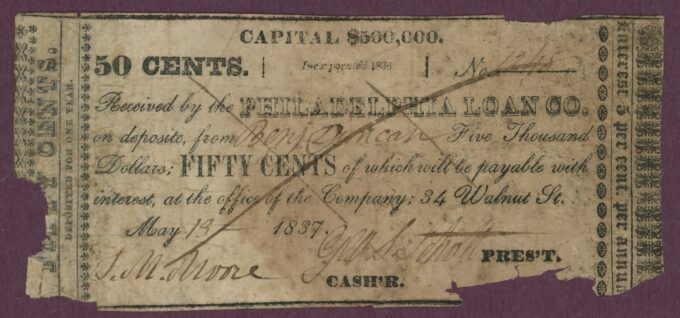 CAPITAL $500,000.
50 CENTS. Incorporated 1836 No
Received by the PHILADELPHIA LOAN CO.
on deposite, from Benj Duncan Five Thousand
Dollars; FIFTY CENTS of which will be payable with
interest, at the office of the Company; 34 Walnut St.
May 13 1837.
J. M. Moore Schott PRES'T.
CASH'R.
FIFTY CENTS.
DEPOSITED FOR ONE YEAR.
Interest 5 per cent. per annum